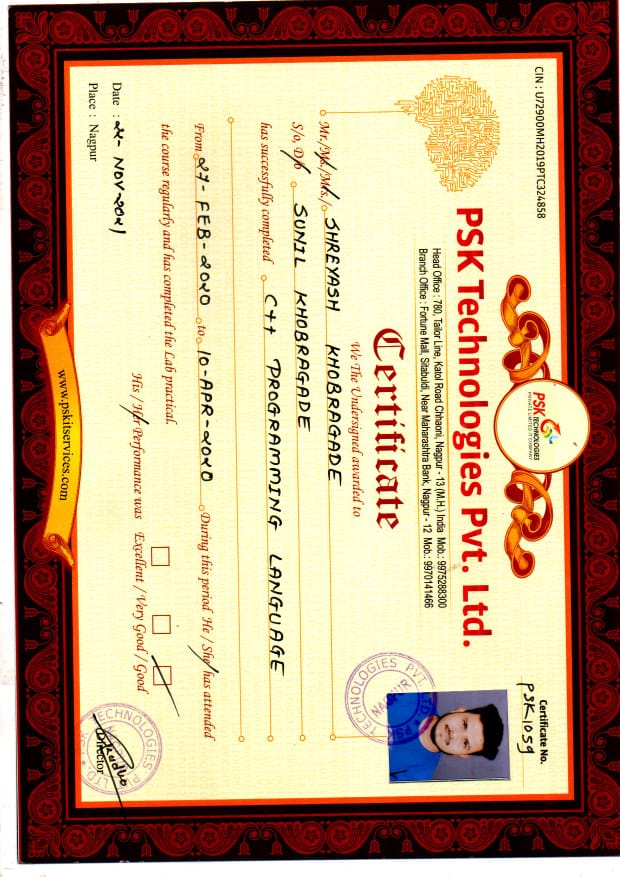 CIN : U72900MH2019PTC324858
Certificate No.
PSK1059
PSK TECHNOLOGIES
PRIVATE LIMITED IT COMPANY
PSK Technologies Pvt. Ltd.
Head Office : 780, Tailor Line, Katol Road Chhaoni, Nagpur - 13 (M.H.) India Mob.: 9975288300
Branch Office : Fortune Mall, Sitabuldi, Near Maharashtra Bank, Nagpur - 12 Mob.: 9970141466
PSK TECHNOLOGIES PVT. LTD.
NAGPUR
Certificate
We The Undersigned awarded to
Mr./Ms./Mrs./ SHREYASH KHOBRAGADE
S/o, D/o SUNIL KHOBRAGADE
has successfully completed C++ PROGRAMMING LANGUAGE
From 27-FEB-2020 to 10-APR-2020 During this period He / She has attended
the course regularly and has completed the Lab practical.
His / Her Performance was Excellent / Very Good / Good
Date : NOV-2021
Place : Nagpur
TECHNOLOGIES PVT. LTD.
Director
www.pskitservices.com